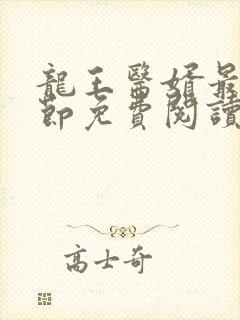 龍王醫婿最
節免費閱讀
高士奇